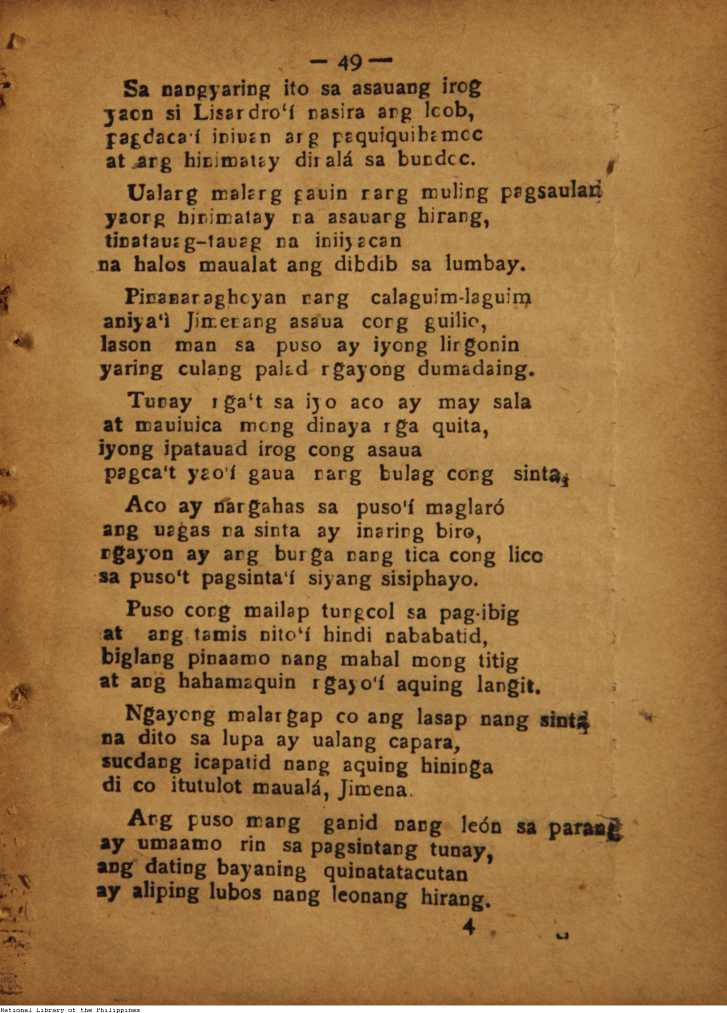 — 49 —
Sa nangyaring ito sa asauang irog
yaon si Lisardro'í nasira ang loob,
pagdaca'í iniuan ang paquiquihamoc
at ang hinimatay dinalá sa bundoc.
Ualang malang gauin nang muling pagsaulan
yaong hinimatay na asauang hirang,
tinatauag-tauag na iniiyacan
na halos maualat ang dibdib sa lumbay.
Pinanaraghoyan nang calaguim-laguim
aniya'ì Jimenang asaua cong guilio,
lason man sa puso ay iyong lingonin
yaring culang palad ngayong dumadaing.
Tunay nga't sa iyo aco ay may sala
at mauiuica mong dinaya nga quita,
iyong ipatauad irog cong asaua
pagca't yao'í gaua nang bulag cong sinta,
Aco ay nangahas sa puso'í maglaró
ang uagas na sinta ay inaring biro,
ngayon ay ang bunga nang tica cong lico
sa puso't pagsinta'í siyang sisiphayo.
Puso cong mailap tungcol sa pag-ibig
at ang tamis nito'í hindi nababatid,
biglang pinaamo nang mahal mong titig
at ang hahamaquin ngayo'í aquing langit.
Ngayong malangap co ang lasap nang sinta
na dito sa lupa ay ualang capara,
sucdang icapatid nang aquing hininga
di co itutulot maualá, Jimena.
Ang puso mang ganid nang león sa parang
ay umaamo rin sa pagsintang tunay,
ang dating bayaning quinatatacutan
ay aliping lubos nang leonang hirang.
4
National Library of the Philippines